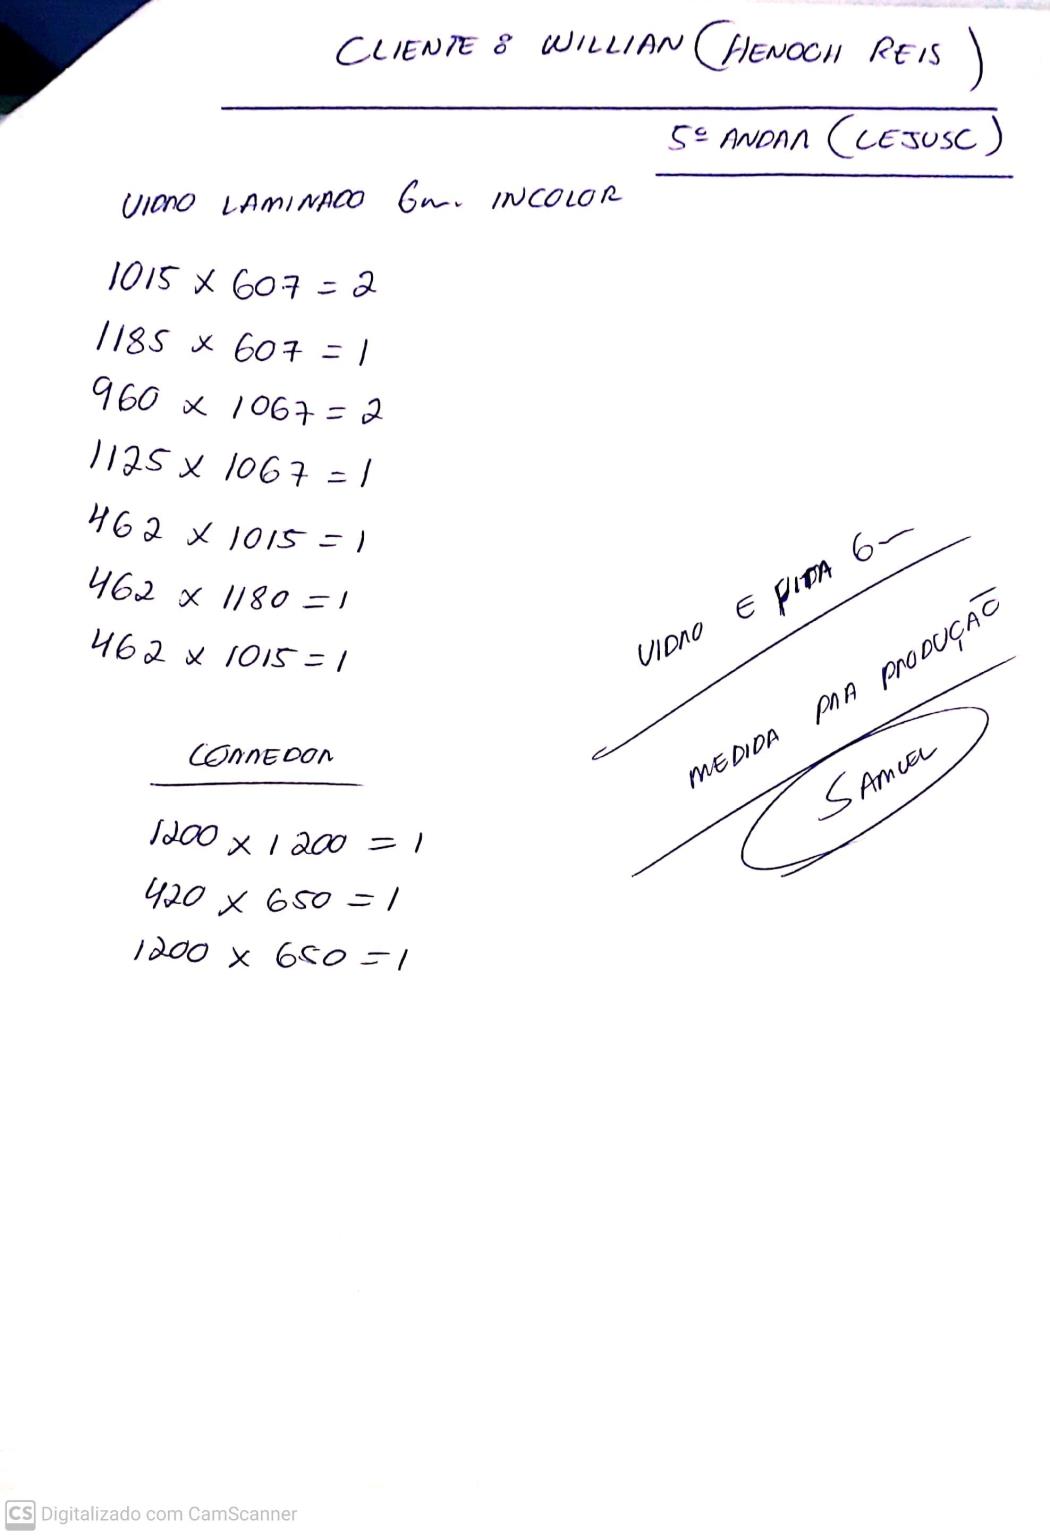 CLIENTE : WILLIAN (HENOCH REIS)
5º ANDAR (CEJUSC)
VIDRO LAMINADO 6m. INCOLOR
1015 x 607 = 2
1185 x 607 = 1
960 x 1067 = 2
1125 x 1067 = 1
462 x 1015 = 1
462 x 1180 = 1
462 x 1015 = 1
VIDRO E FITA 6m
MEDIDA PRA PRODUÇÃO
SAMUEL
CORREDOR
1200 x 1200 = 1
420 x 650 = 1
1200 x 650 = 1
CS Digitalizado com CamScanner